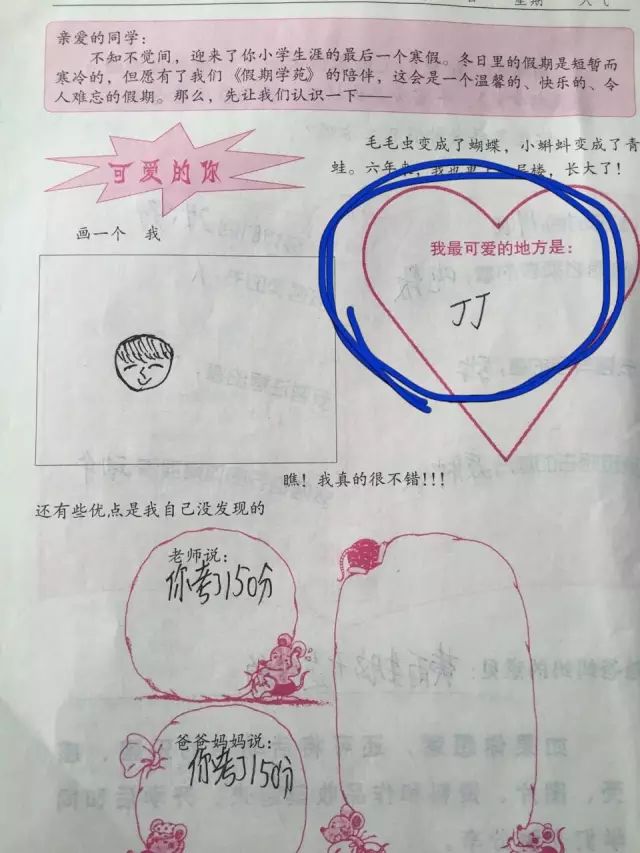 星期 天气
亲爱的同学：
不知不觉间，迎来了你小学生涯的最后一个寒假。冬日里的假期是短暂而
寒冷的，但愿有了我们《假期学苑》的陪伴，这会是一个温馨的、快乐的、令
人难忘的假期。那么，先让我们认识一下——
可爱的你
毛毛虫变成了蝴蝶，小蝌蚪变成了青
蛙。六年来，我也更上一层楼，长大了！
画一个 我
我最可爱的地方是：
JJ
瞧！我真的很不错！！！
还有些优点是我自己没发现的
老师说：
你考了150分
爸爸妈妈说：
你考了150分